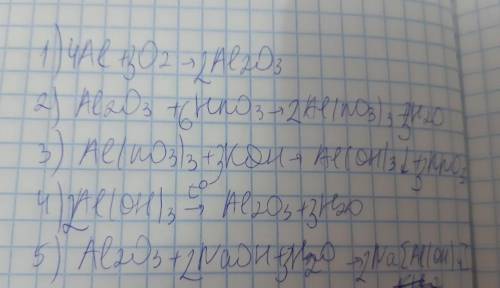 1) 4Al + 3O2 → 2Al2O3
2) Al2O3 + 6HNO3 → 2Al(NO3)3 + 3H2O
3) Al(NO3)3 + 3KOH → Al(OH)3↓ + 3KNO3
4) 2Al(OH)3 t° → Al2O3 + 3H2O
5) Al2O3 + 2NaOH + 3H2O → 2Na[Al(OH)4]